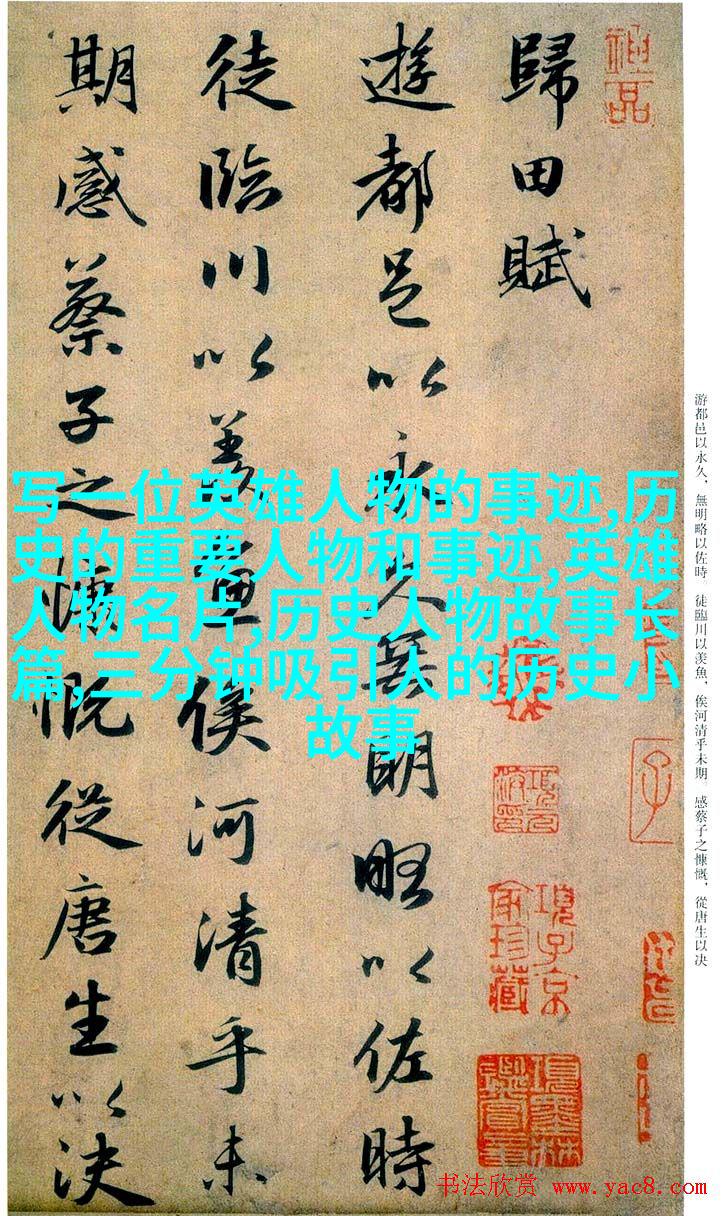 歸田賦
遊都邑以永久無明略以佐時
徒臨川以羡魚俟河清乎未
期感蔡子之慷慨從唐生以决
写一位英雄人物的事迹,历
史的重要人物和事迹,英雄
人物名片,历史人物故事长
篇,三分钟吸引人的历史小
故事
游都邑以永久，無明略以佐時 徒臨川以羡魚，俟河清乎未期 感蔡子之慷慨，從唐生以决
項子京
家珍藏
书法欣赏 www.yac8.com